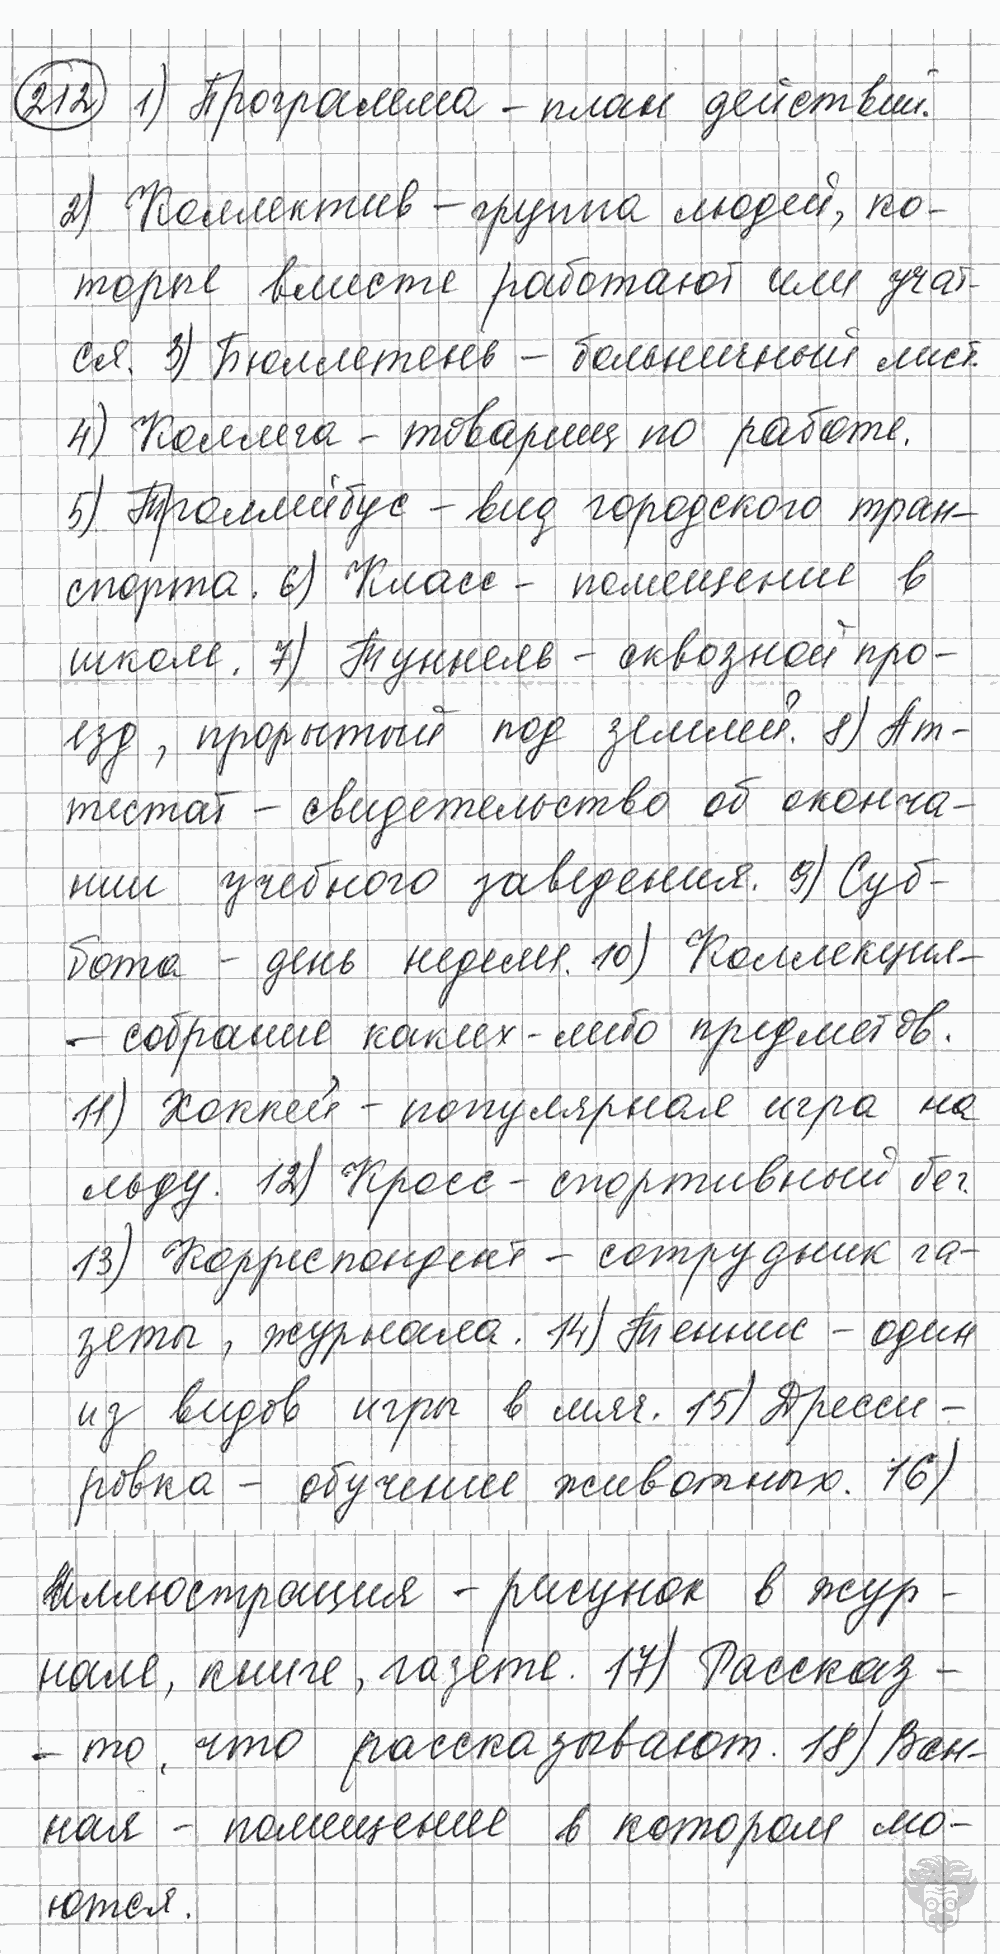 212 1) Программа – план действий.
2) Коллектив – группа людей, ко-
торые вместе работают или учат-
ся. 3) Бюллетень – больничный лист.
4) Коллега – товарищ по работе.
5) Троллейбус – вид городского тран-
спорта. 6) Класс – помещение в
школе. 7) Туннель – сквозной про-
езд, прорытый под землёй. 8) Ат-
тестат – свидетельство об оконча-
нии учебного заведения. 9) Суб-
бота – день недели. 10) Коллекция –
– собрание каких-либо предметов.
11) Хоккей – популярная игра на
льду. 12) Кросс – спортивный бег.
13) Корреспондент – сотрудник га-
зеты, журнала. 14) Теннис – один
из видов игры в мяч. 15) Дресси-
ровка – обучение животных. 16)
Иллюстрация – рисунок в жур-
нале, книге, газете. 17) Рассказ –
– то, что рассказывают. 18) Ван-
ная – помещение в котором мо-
ются.